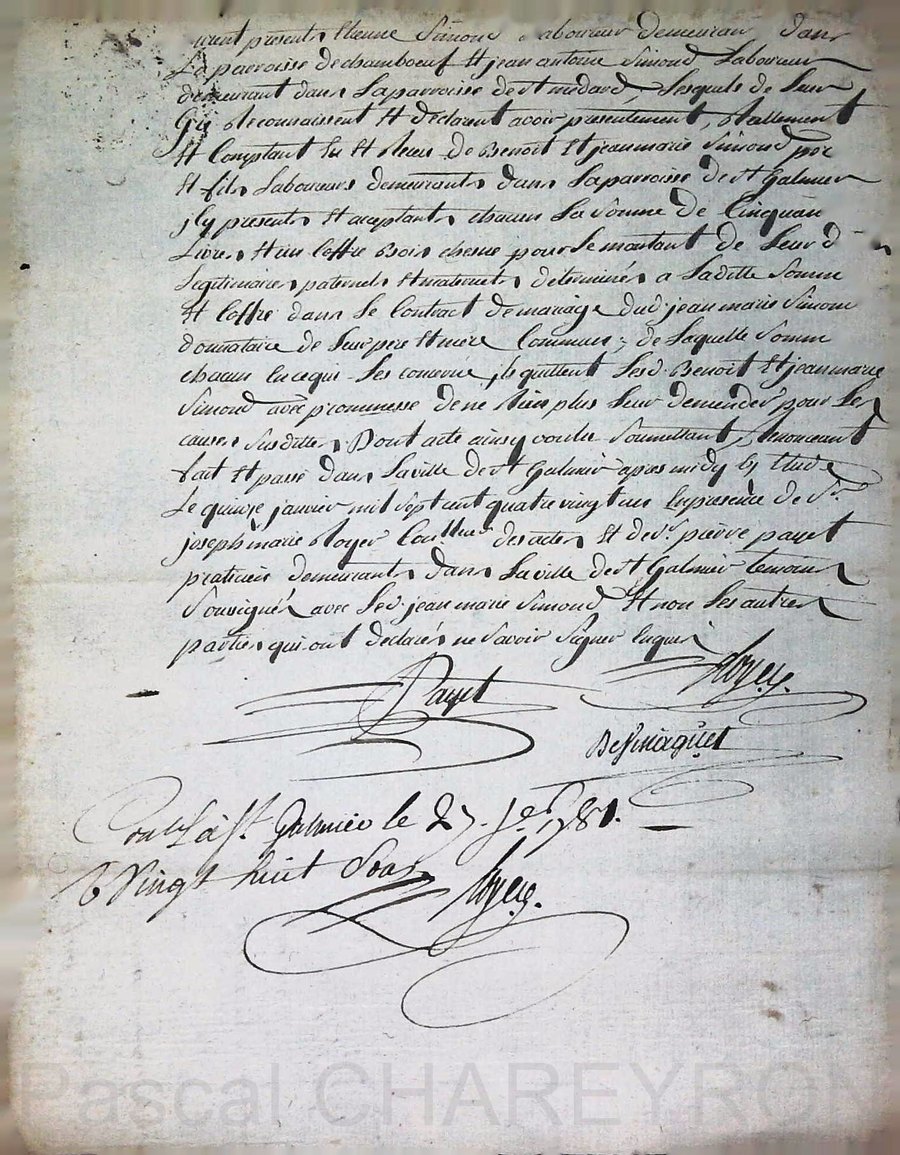 urent presents Etienne Simond Laboureur demeurant dans
La parroisse de chamboeuf Et jean antoine Simond Laboureur
demeurant dans La parroisse de St medard, Lesquels de Leur
Gré Reconnaissent Et declarent avoir presentement, Reallement
Et Comptant Eu Et Receu de Benoit Et jean marie Simond pere
Et fils Laboureurs demeurants dans La parroisse de St Galmier
jcy presents Et aceptants chacun La Somme de Cinquan
Livres Et un Coffre Bois chesne pour Le montant de Leur d
Legitimaires paternels Et maternels determinés a Laditte Somme
Et Coffre dans Le Contract de mariage dud. jean marie Simond
donnataire de Leur pere Et mere Communs; de Laquelle Somme
chacun En ce qui Les concerne, jls quittent Lesd. Benoit Et jean marie
Simond avec prommesse de ne Rien plus Leur demender pour Les
causes Susdittes Dont acte ainsy voulu Soumettant, Renonceant
fait Et passé dans La ville de St Galmier apres midy Es Etude
Le quinze janvier mil Sept cent quatre vingt un En presence de Sr.
joseph marie Royer Con.lleur des actes Et de Sr. pierre payet
praticien demeurants dans La ville de St Galmier temoins
Soussignés avec Led. jean marie Simond Et non Les autres
parties qui ont declarés ne Savoir Signer Enquis
Payet Royer.
Desmaquet
Con.lé à St. Galmier le 27. Jer. 1781.
R Vingt huit Sous
Royer.
Pascal CHAREYRON